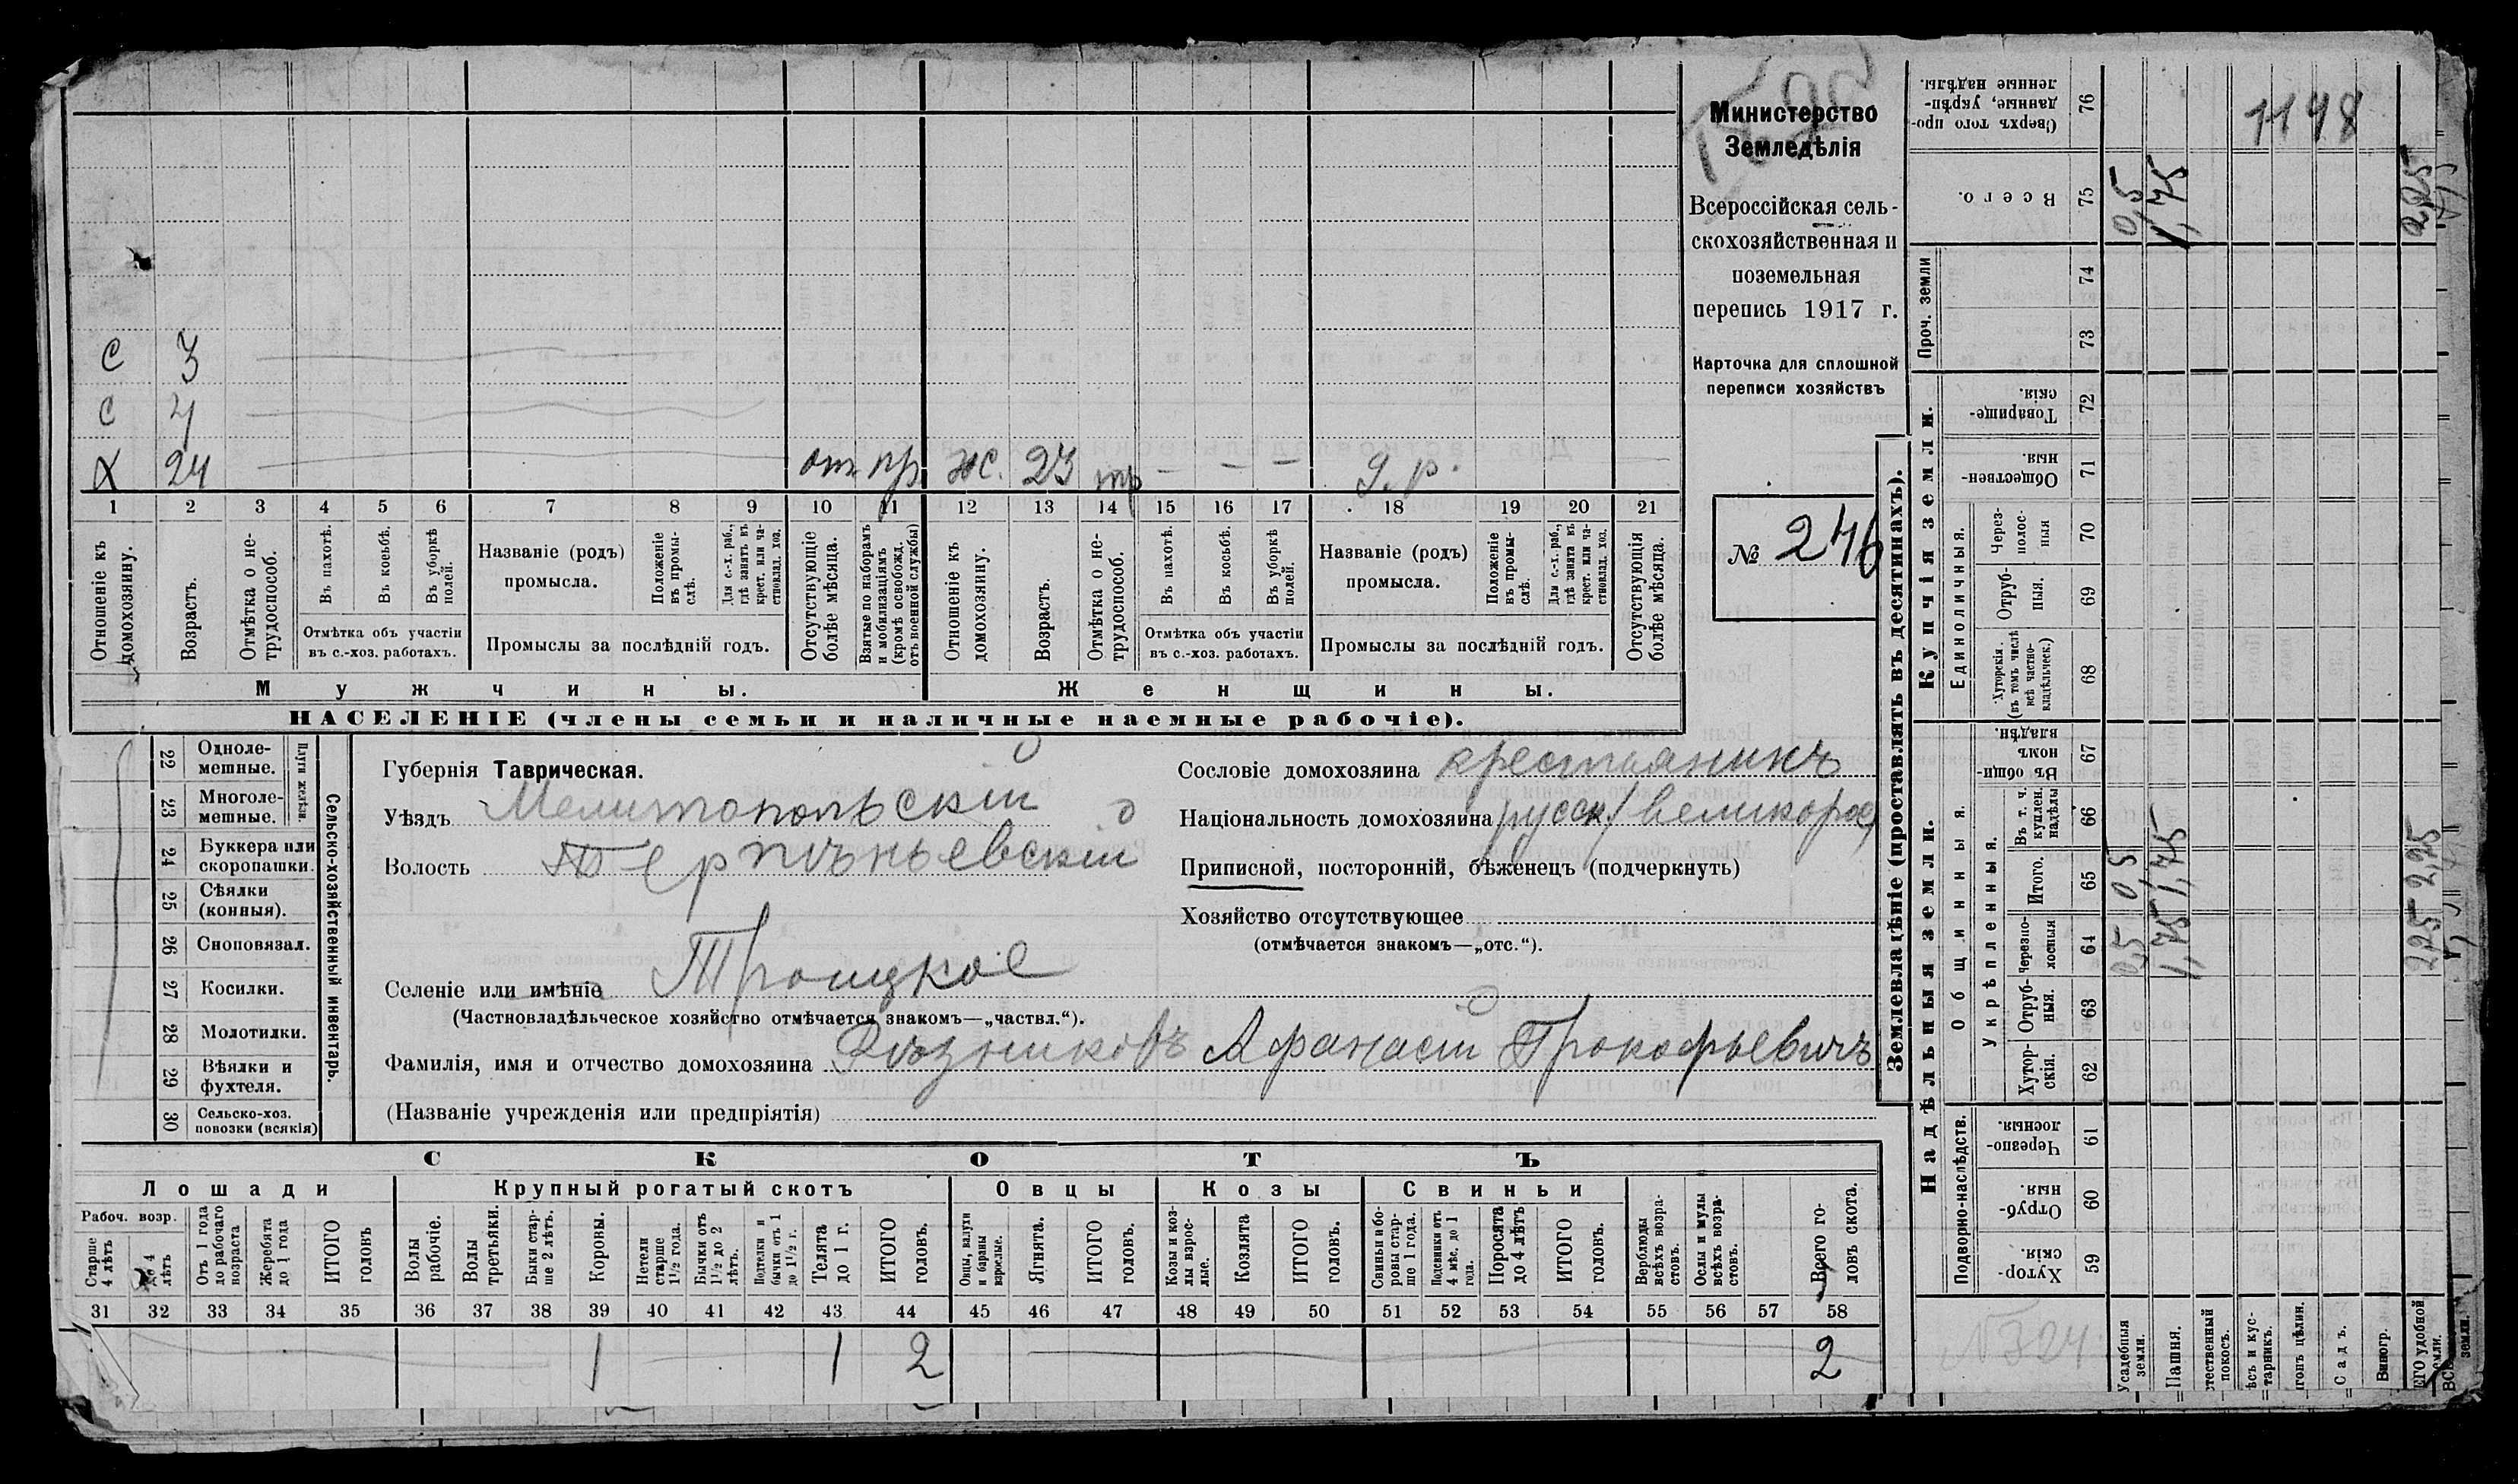 Министерство
Земледѣлія
Всероссійская сель-
скохозяйственная и
поземельная
перепись 1917 г.
Карточка для сплошной
переписи хозяйствъ
№ 246
с 3
с 4
х 24 отп пр ж. 23 тр — — — д. р.
1 2 3 4 5 6 7 8 9 10 11 12 13 14 15 16 17 18 19 20 21
Отношеніе къ домохозяину.
Возрастъ.
Отмѣтка о не-трудоспособ.
Въ пахотѣ.
Въ косьбѣ.
Въ уборкѣ полей.
Отмѣтка объ участіи
въ с.-хоз. работахъ.
Названіе (родъ)
промысла.
Положеніе въ промы-слѣ.
Для с.-х. раб., гдѣ занятъ въ крест. или ча-стновлад. хоз.
Промыслы за послѣдній годъ.
Отсутствующіе болѣе мѣсяца.
Взятые по наборамъ и мобилизаціямъ (кромѣ освобожд. отъ военной службы)
Отношеніе къ домохозяину.
Возрастъ.
Отмѣтка о не-трудоспособ.
Въ пахотѣ.
Въ косьбѣ.
Въ уборкѣ полей.
Отмѣтка объ участіи
въ с.-хоз. работахъ.
Названіе (родъ)
промысла.
Положеніе въ промы-слѣ.
Для с.-х. раб., гдѣ занята въ крест. или ча-стновлад. хоз.
Промыслы за послѣдній годъ.
Отсутствующія болѣе мѣсяца.
Мужчины. Женщины.
НАСЕЛЕНІЕ (члены семьи и наличные наемные рабочіе).
Сельско-хозяйственный инвентарь.
Плуги желѣзн.
22 Одноле-мешные.
23 Многоле-мешные.
24 Буккера или скоропашки.
25 Сѣялки (конныя).
26 Сноповязал.
27 Косилки.
28 Молотилки.
29 Вѣялки и фухтеля.
30 Сельско-хоз. повозки (всякія)
Губернія Таврическая.
Уѣздъ Мелитопольскій
Волость Терпѣньевскій
Селеніе или имѣніе Троицкое
(Частновладѣльческое хозяйство отмѣчается знакомъ—„частвл.“).
Фамилія, имя и отчество домохозяина Рѣзниковъ Афанасій Прокофьевичъ
(Названіе учрежденія или предпріятія)
Сословіе домохозяина крестьянинъ
Національность домохозяина русск/великорос
Приписной, посторонній, бѣженецъ (подчеркнуть)
Хозяйство отсутствующее
(отмѣчается знакомъ—„отс.“).
СКОТЪ
Лошади Крупный рогатый скотъ Овцы Козы Свиньи
Рабоч. возр.
Старше 4 лѣтъ
до 4 лѣтъ
Отъ 1 года до рабочаго возраста
Жеребята до 1 года
ИТОГО головъ
Волы рабочіе.
Волы третьяки.
Быки стар-ше 2 лѣтъ.
Коровы.
Нетели старше 1½ года.
Бычки отъ 1½ до 2 лѣтъ.
Подтелки и бычки отъ 1 до 1½ г.
Телята до 1 г.
ИТОГО головъ.
Овцы, валухи и бараны взрослые.
Ягнята.
ИТОГО головъ.
Козы и коз-лы взрос-лые.
Козлята
ИТОГО головъ.
Свиньи и бо-ровы стар-ше 1 года.
Подсвинки отъ 4 мѣс. до 1 года.
Поросята до 4 лѣтъ
ИТОГО головъ.
Верблюды всѣхъ возра-стовъ.
Ослы и мулы всѣхъ возра-стовъ.
Всего го-ловъ скота.
31 32 33 34 35 36 37 38 39 40 41 42 43 44 45 46 47 48 49 50 51 52 53 54 55 56 57 58
1 1 2 2
Землевладѣніе (проставлять въ десятинахъ).
Купчія земли.
Надѣльныя земли.
Сверхъ того про-данные, укрѣп-ленные надѣлы. 76
1148
Всего. 75 0,5 1,75 2,25
Проч. земли 74 73
Товарище-скія. 72
Обществен-ныя. 71
Единоличныя.
Через-полос-ныя 70
Отруб-ныя. 69
Хуторскія. (въ томъ числѣ всѣ частно-владѣльческ.) 68
Общинныя.
Въ общи-номъ владѣн. 67
Укрѣпленныя.
Въ т. ч. куплен. надѣлы 66
Итого. 65 0,5 1,75 2,25
Черезпо-лосныя 64 0,5 1,75 2,25
Отруб-ныя. 63
Хутор-скія. 62
Подворно-наслѣдств.
Черезпо-лосныя. 61
Отруб-ныя. 60
Хутор-скія. 59
№324
Усадебныя земли.
Пашня.
тественный покосъ.
ѣсъ и кус-тарникъ.
гонъ цѣлин.
Садъ.
Виногр.
ЕГО удобной земли.